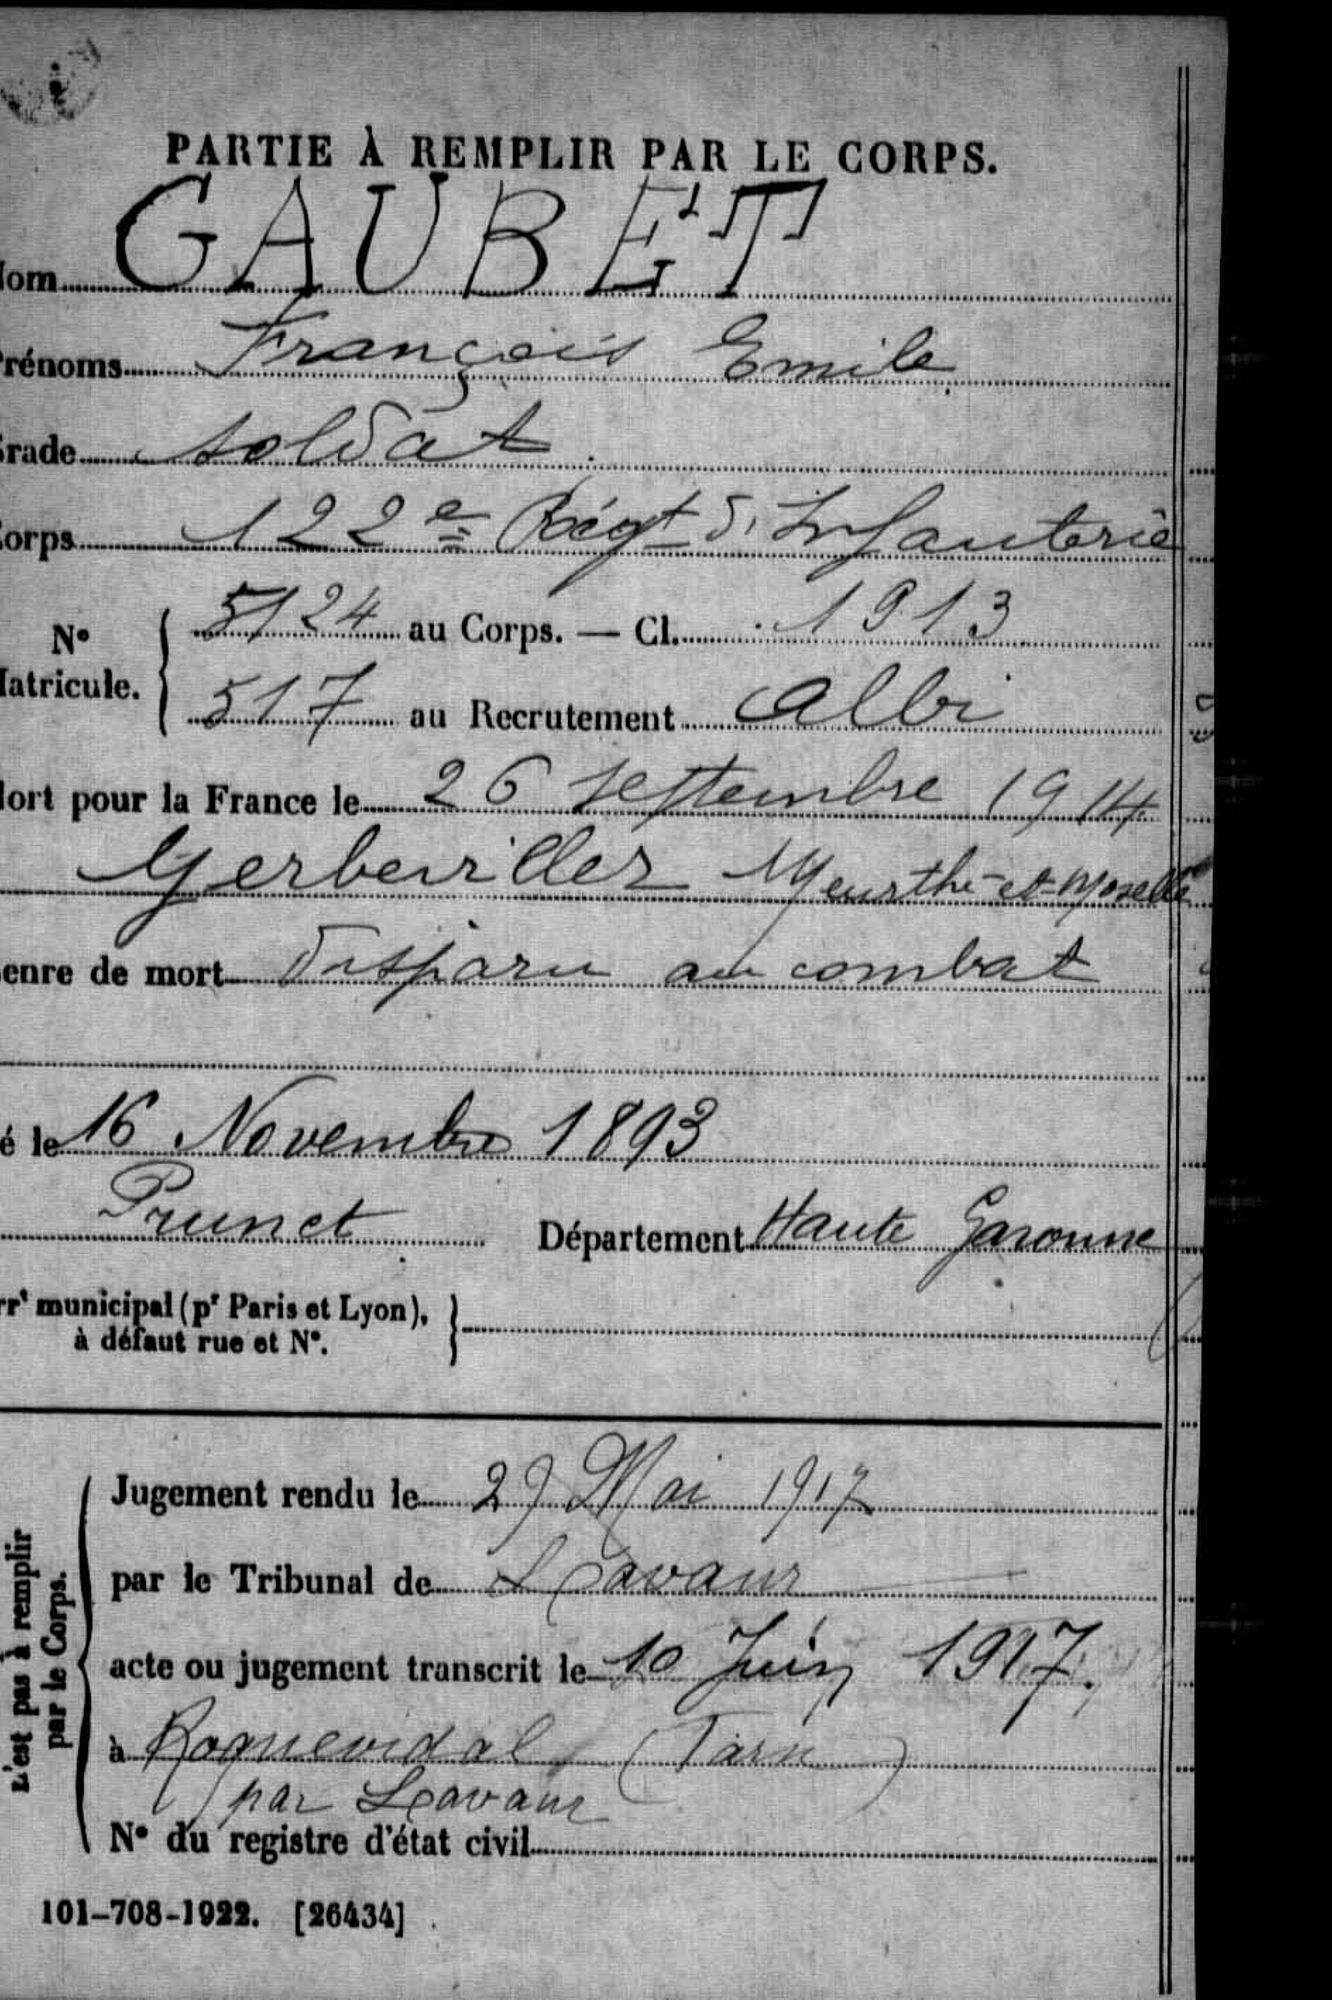 PARTIE À REMPLIR PAR LE CORPS.
Nom GAUBET
Prénoms François Emile
Grade soldat
Corps 122e Régt d'Infanterie
N° Matricule. { 5124 au Corps. — Cl. 1913
517 au Recrutement Albi
Mort pour la France le 26 septembre 1914
Gerbeviller Meurthe-et-Moselle
Genre de mort Disparu au combat
Né le 16 Novembre 1893
Prunet Département Haute Garonne
Arrt municipal (pr Paris et Lyon), à défaut rue et N°. }
L'est pas à remplir par le Corps.
Jugement rendu le 29 Mai 1917
par le Tribunal de Lavaur
acte ou jugement transcrit le 10 Juin 1917.
à Roquevidal (Tarn)
par Lavaur
N° du registre d'état civil
101-708-1922. [26434]